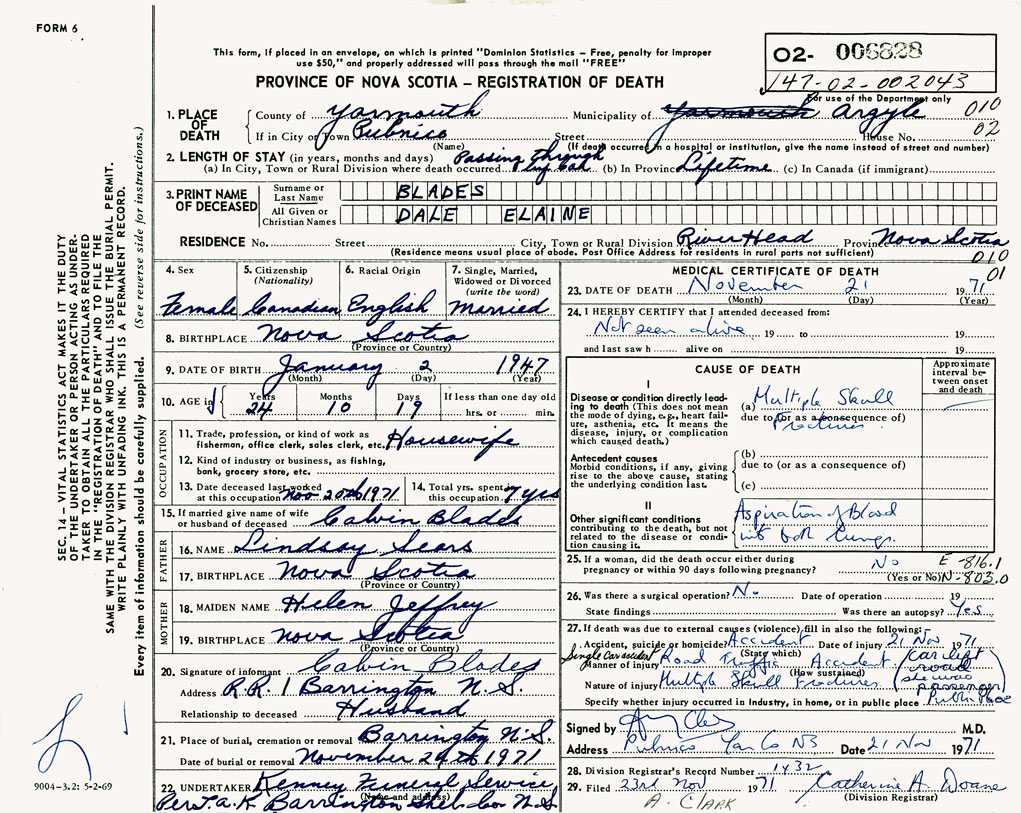 FORM 6
This form, if placed in an envelope, on which is printed "Dominion Statistics – Free, penalty for improper
use $50," and properly addressed will pass through the mail "FREE"
PROVINCE OF NOVA SCOTIA – REGISTRATION OF DEATH
02- 006828
147-02-002043
For use of the Department only
010
02
1. PLACE OF DEATH County of Yarmouth Municipality of Yarmouth Argyle
If in City or Town Pubnico Street House No.
(Name) (If death occurred in a hospital or institution, give the name instead of street and number)
2. LENGTH OF STAY (in years, months and days) Passing through
(a) In City, Town or Rural Division where death occurred by car (b) In Province Lifetime (c) In Canada (if immigrant)
3. PRINT NAME OF DECEASED
Surname or Last Name BLADES
All Given or Christian Names DALE ELAINE
RESIDENCE No. Street City, Town or Rural Division River Head Province Nova Scotia
(Residence means usual place of abode. Post Office Address for residents in rural parts not sufficient)
010
01
4. Sex Female
5. Citizenship (Nationality) Canadian
6. Racial Origin English
7. Single, Married, Widowed or Divorced (write the word) Married
8. BIRTHPLACE Nova Scotia
(Province or Country)
9. DATE OF BIRTH January 2 1947
(Month) (Day) (Year)
10. AGE in Years 24 Months 10 Days 19 If less than one day old hrs. or min.
OCCUPATION
11. Trade, profession, or kind of work as fisherman, office clerk, sales clerk, etc. Housewife
12. Kind of industry or business, as fishing, bank, grocery store, etc.
13. Date deceased last worked at this occupation Nov 20th 1971
14. Total yrs. spent in this occupation 7 yrs
15. If married give name of wife or husband of deceased Calvin Blades
FATHER
16. NAME Lindsay Sears
17. BIRTHPLACE Nova Scotia
(Province or Country)
MOTHER
18. MAIDEN NAME Helen Jeffrey
19. BIRTHPLACE Nova Scotia
(Province or Country)
20. Signature of informant Calvin Blades
Address R.R. 1 Barrington N.S.
Relationship to deceased Husband
21. Place of burial, cremation or removal Barrington N.S.
Date of burial or removal November 24th 1971
22. UNDERTAKER Kenney Funeral Service
(Name and address)
Per T.A.K Barrington Shel. Co N.S.
MEDICAL CERTIFICATE OF DEATH
23. DATE OF DEATH November 21 1971
(Month) (Day) (Year)
24. I HEREBY CERTIFY that I attended deceased from:
Not seen alive 19 to 19
and last saw h alive on 19
CAUSE OF DEATH
Approximate interval between onset and death
I
Disease or condition directly leading to death (This does not mean the mode of dying, e.g., heart failure, asthenia, etc. It means the disease, injury, or complication which caused death.)
(a) Multiple Skull Fractures
due to (or as a consequence of)
Antecedent causes
Morbid conditions, if any, giving rise to the above cause, stating the underlying condition last.
(b)
due to (or as a consequence of)
(c)
II
Other significant conditions contributing to the death, but not related to the disease or condition causing it.
Aspiration of Blood
into both lungs.
25. If a woman, did the death occur either during pregnancy or within 90 days following pregnancy? No
(Yes or No)
E-816.1
N-803.0
26. Was there a surgical operation? No Date of operation 19
State findings Was there an autopsy? Yes
27. If death was due to external causes (violence) fill in also the following:
Accident, suicide or homicide? Accident Date of injury 21 Nov 1971
(State which)
Single Car accident
Manner of injury Road Traffic Accident (car left road she was passenger)
(How sustained)
Nature of injury Multiple Skull Fractures
Specify whether injury occurred in Industry, in home, or in public place Public Place
Signed by M.D.
Address Pubnico Yar Co NS Date 21 Nov 1971
28. Division Registrar's Record Number 1432
29. Filed 23rd Nov 1971 Catherine A Doane
(Division Registrar)
A. CLARK
SEC. 14 – VITAL STATISTICS ACT MAKES IT THE DUTY
OF THE UNDERTAKER OR PERSON ACTING AS UNDER-
TAKER TO OBTAIN ALL THE PARTICULARS REQUIRED
IN THE "REGISTRATION OF DEATH" AND TO FILE THE
SAME WITH THE DIVISION REGISTRAR WHO SHALL ISSUE THE BURIAL PERMIT.
WRITE PLAINLY WITH UNFADING INK. THIS IS A PERMANENT RECORD.
Every item of information should be carefully supplied. (See reverse side for instructions.)
9004-3.2: 5-2-69